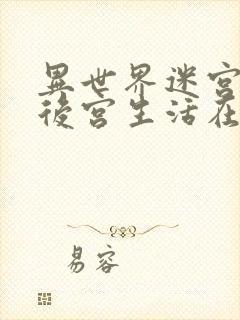 異世界迷宮
後宮生活在
易容